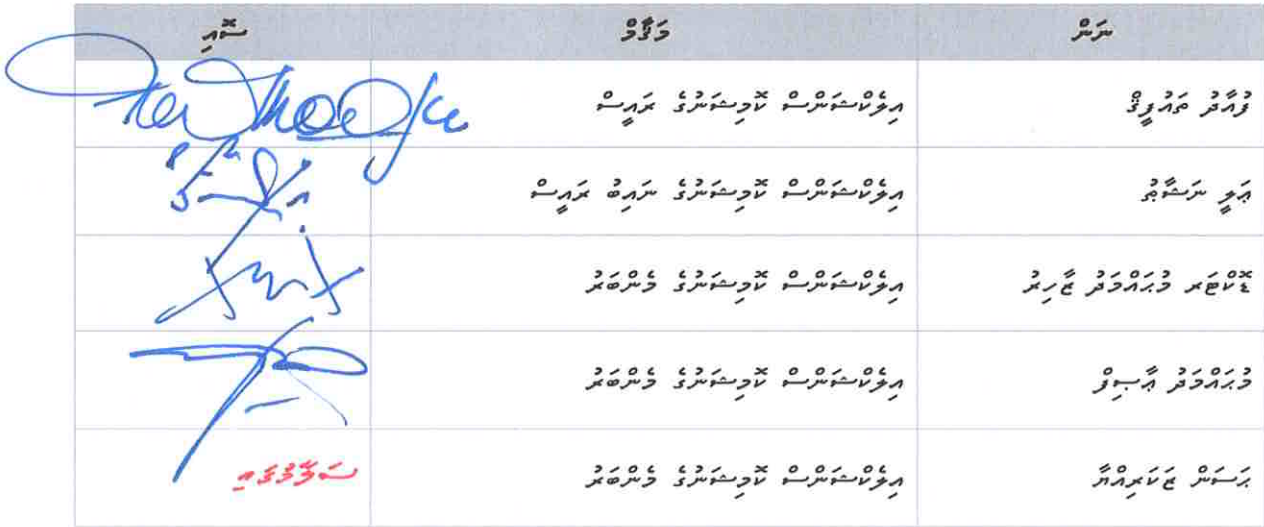 ނަން މަޤާމް ސޮއި
ފުއާދު ތައުފީޤް އިލެކްޝަންސް ކޮމިޝަނުގެ ރައީސް
ޢަލީ ނަޝާޠު އިލެކްޝަންސް ކޮމިޝަނުގެ ނައިބު ރައީސް
ޑޮކްޓަރ މުޙައްމަދު ޒާހިރު އިލެކްޝަންސް ކޮމިޝަނުގެ މެންބަރު
މުޙައްމަދު ޢާޞިފް އިލެކްޝަންސް ކޮމިޝަނުގެ މެންބަރު
ޙަސަން ޒަކަރިއްޔާ އިލެކްޝަންސް ކޮމިޝަނުގެ މެންބަރު ސަލާމުގައި